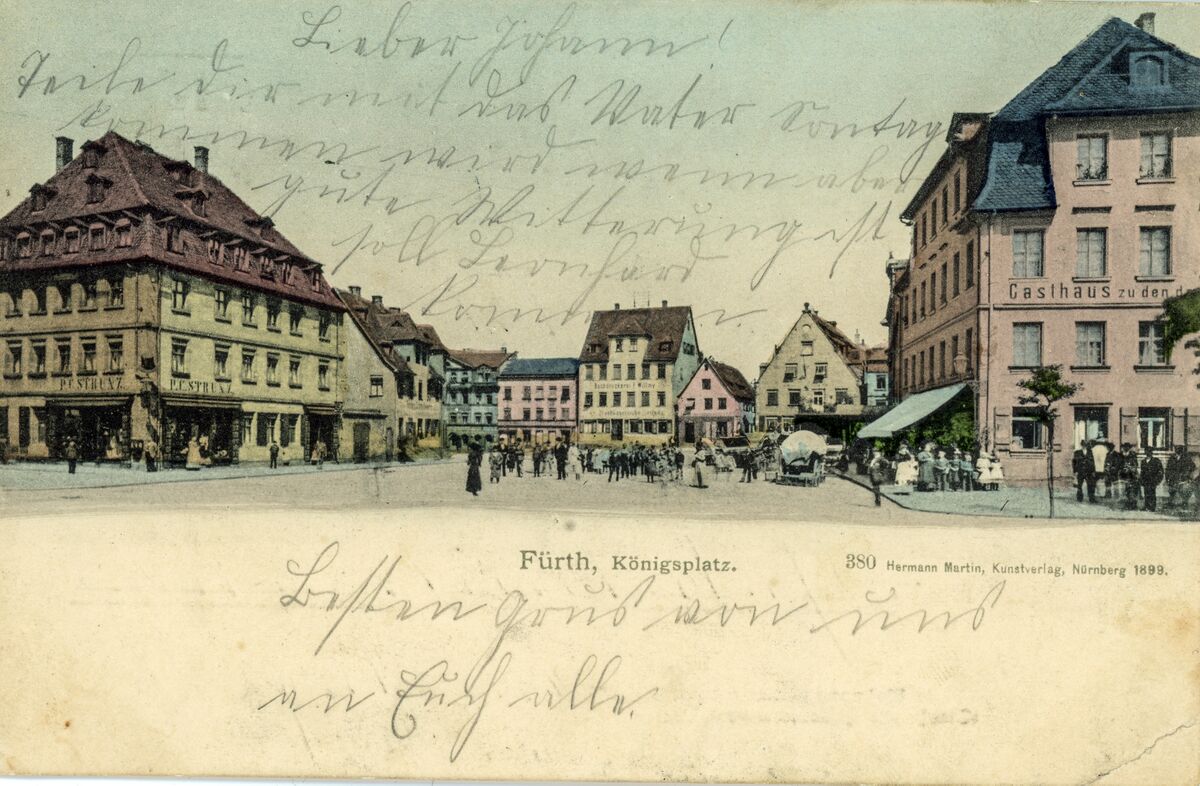 Lieber Johann!
Teile dir mit das Vater Sontag
kommen wird wenn aber
gute Witterung ist
soll Leonhard
kommen.
P.C.STRUNZ
P.C.STRUNZ
Gasthaus zu den d
Fürth, Königsplatz.
380 Hermann Martin, Kunstverlag, Nürnberg 1899.
Besten grus von uns
an Euch alle.